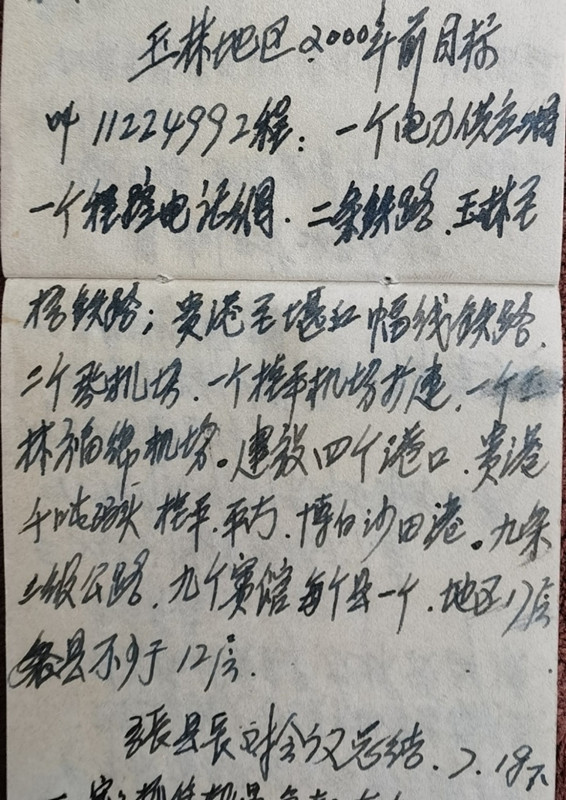 玉林地区2000年前目标
叫11224992程：一个电力供应网
一个程控电话网．二条铁路．玉林至
梧铁路；贵港至湛江幅线铁路．
二个飞机场．一个桂平机场扩建．一个玉
林福绵机场。建设四个港口．贵港
千吨码头 桂平．平南．博白沙田港。九条
二级公路．九个宾馆每个县一个．地区17层
各县不少于12层．
张县长对会议总结．7.18下